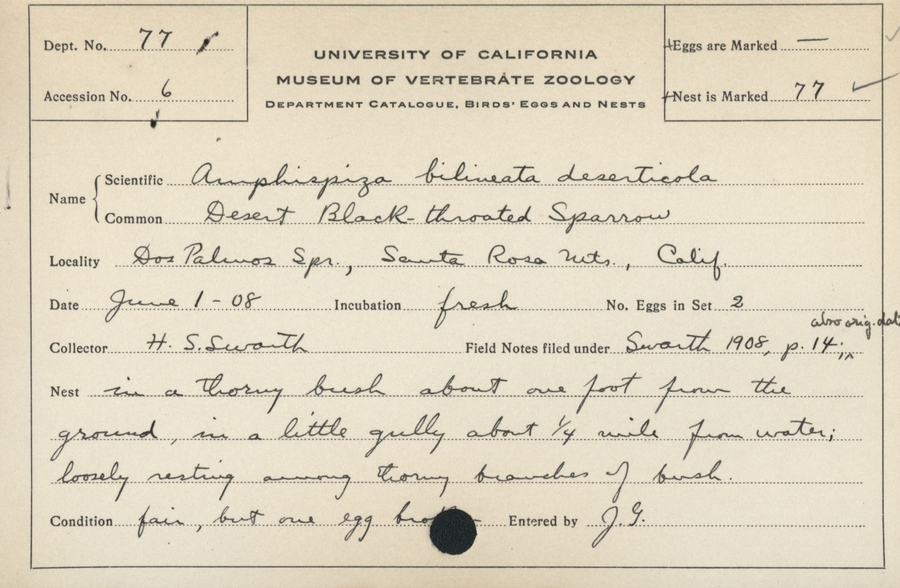 Dept. No. 77
Accession No. 6
UNIVERSITY OF CALIFORNIA
MUSEUM OF VERTEBRATE ZOOLOGY
DEPARTMENT CATALOGUE, BIRDS' EGGS AND NESTS
Eggs are Marked —
Nest is Marked 77 ✓
Name { Scientific Amphispiza bilineata deserticola
Common Desert Black-throated Sparrow
Locality Dos Palmos Spr., Santa Rosa Mts., Calif.
Date June 1 - 08 Incubation fresh No. Eggs in Set 2
also orig. dat
Collector H. S. Swarth Field Notes filed under Swarth 1908, p. 14;
Nest in a thorny bush about one foot from the
ground, in a little gully about 1/4 mile from water;
loosely resting among thorny branches of bush.
Condition fair, but one egg Entered by J. G.